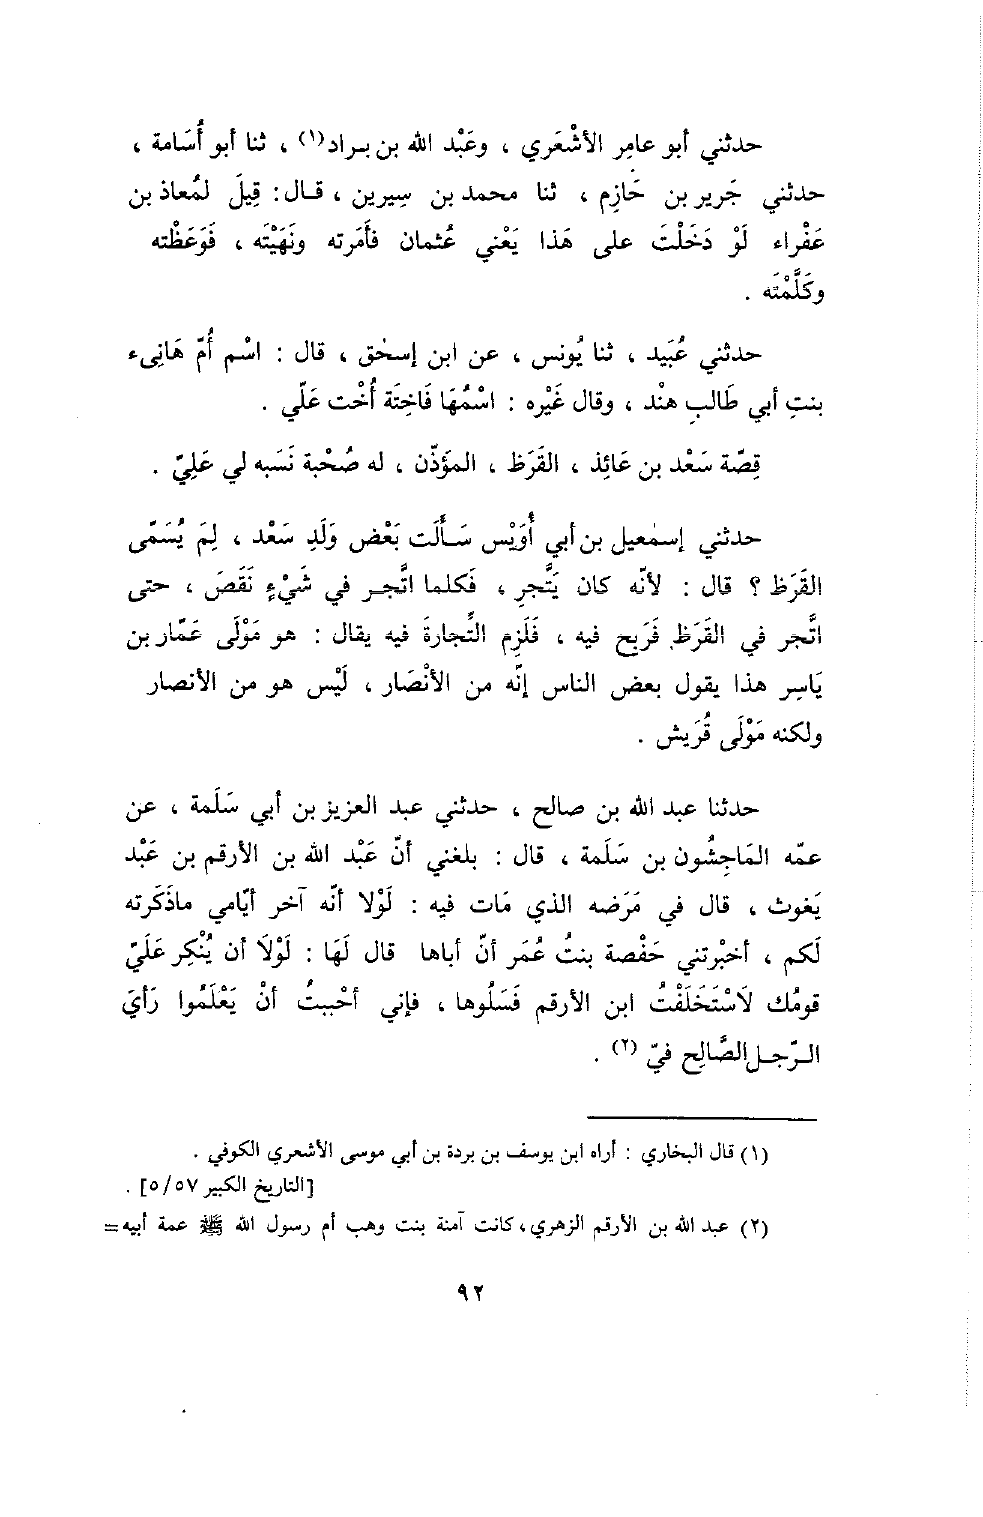 حدثني أبو عامِر الأشْعَري ، وعَبْد الله بن بـراد(١) ، ثنا أبو أُسَامة ،
حدثني جَرير بن حَازِم ، ثنا محمد بن سِيرين ، قـال : قِيلَ لمُعاذ بن
عَفْراء لَوْ دَخَلْتَ على هَذا يَعْني عُثمان فأمَرته ونَهَيْتَه ، فَوَعَظْته
وكَلَّمْتَه .
حدثني عُبَيد ، ثنا يُونس ، عن ابن إسحٰق ، قال : اسْم أُمّ هَانِىء
بنتِ أبي طَالبِ هنْد ، وقال غَيْره : اسْمُهَا فَاخِتَة أُخْت عَلّي .
قِصّة سَعْد بن عَائِذ ، القَرَظ ، المؤَذّن ، له صُحْبة نَسَبه لي عَلِيّ .
حدثني إسمٰعيل بن أبي أُوَيْس سَألَت بَعْض وَلَدِ سَعْد ، لِمَ يُسَمّى
القَرَظ ؟ قال : لأنّه كان يَتَّجرِ ، فَكلما اتَّجـر في شَيْءٍ نَقَصَ ، حتى
اتَّجر في القَرَظ فَرَبِح فيه ، فَلَزِم التِّجارةَ فيه يقال : هو مَوْلَى عَمّار بن
يَاسِر هذا يقول بعض الناس إنّه من الأنْصَار ، لَيْس هو من الأنصار
ولكنه مَوْلَى قُرَيش .
حدثنا عبد الله بن صالح ، حدثني عبد العزيز بن أبي سَلَمة ، عن
عمّه المَاجِشُون بن سَلَمة ، قال : بلغني أنّ عَبْد الله بن الأرقم بن عَبْد
يَغوث ، قال في مَرَضه الذي مَات فيه : لَوْلا أنّه آخر أيّامي ماذَكَرته
لَكم ، أخبْرتني حَفْصة بنتُ عُمَر أنّ أباها قال لَهَا : لَوْلَا أن يُنْكِر عَلَيّ
قومُك لَاسْتَخَلَفْتُ ابن الأرقم فَسَلُوها ، فإني أحْببتُ أنْ يَعْلَمُوا رَأيَ
الـرّجـل الصَّالِح فيّ (٢) .
(١) قال البخاري : أراه ابن يوسف بن بردة بن أبي موسى الأشعري الكوفي .
[التاريخ الكبير ٥/٥٧] .
(٢) عبد الله بن الأرقم الزهري، كانت آمنة بنت وهب أم رسول الله ﷺ عمة أبيه =
٩٢